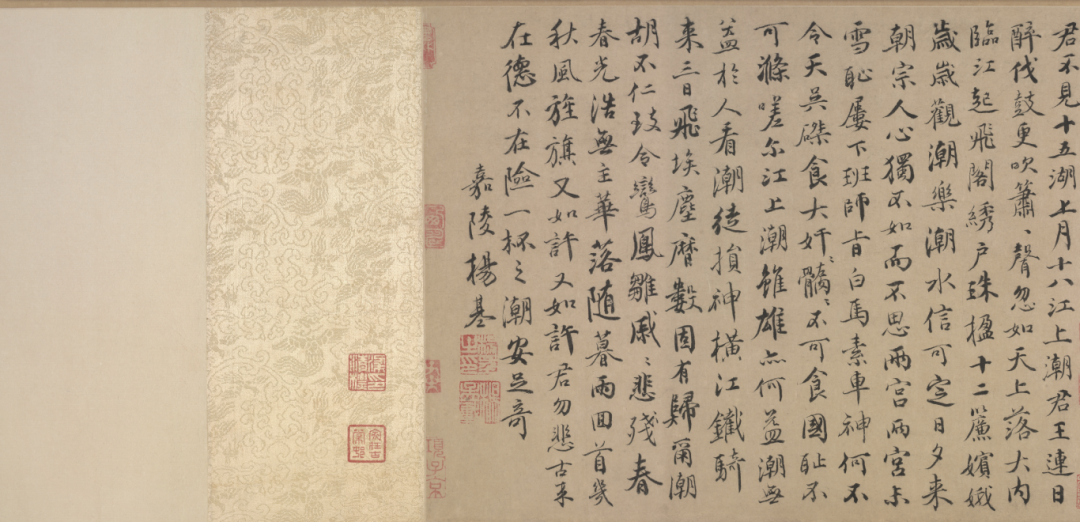 君不見十五湖上月十八江上潮君王連日
醉伐鼓更吹簫〻聲忽如天上落大内
臨江起飛閣綉戶珠楹十二簾嬪娥
歲歲觀潮樂潮水信可定日夕来
朝宗人心獨不如而不思兩宮兩宮未
雪恥屢下班師旨白馬素車神何不
令天吳磔食大奸〻髓〻不可食國恥不
可滌嗟尔江上潮雖雄亦何益潮無
益於人看潮徒損神橫江鐵騎
来三日飛埃塵曆數固有歸爾潮
胡不仁致令鸞鳳雛戚〻悲殘春
春光浩無主華落随暮雨回首幾
秋風旌旗又如許又如許君勿悲古来
在德不在險一杯之潮安足奇
嘉陵楊基
項子京